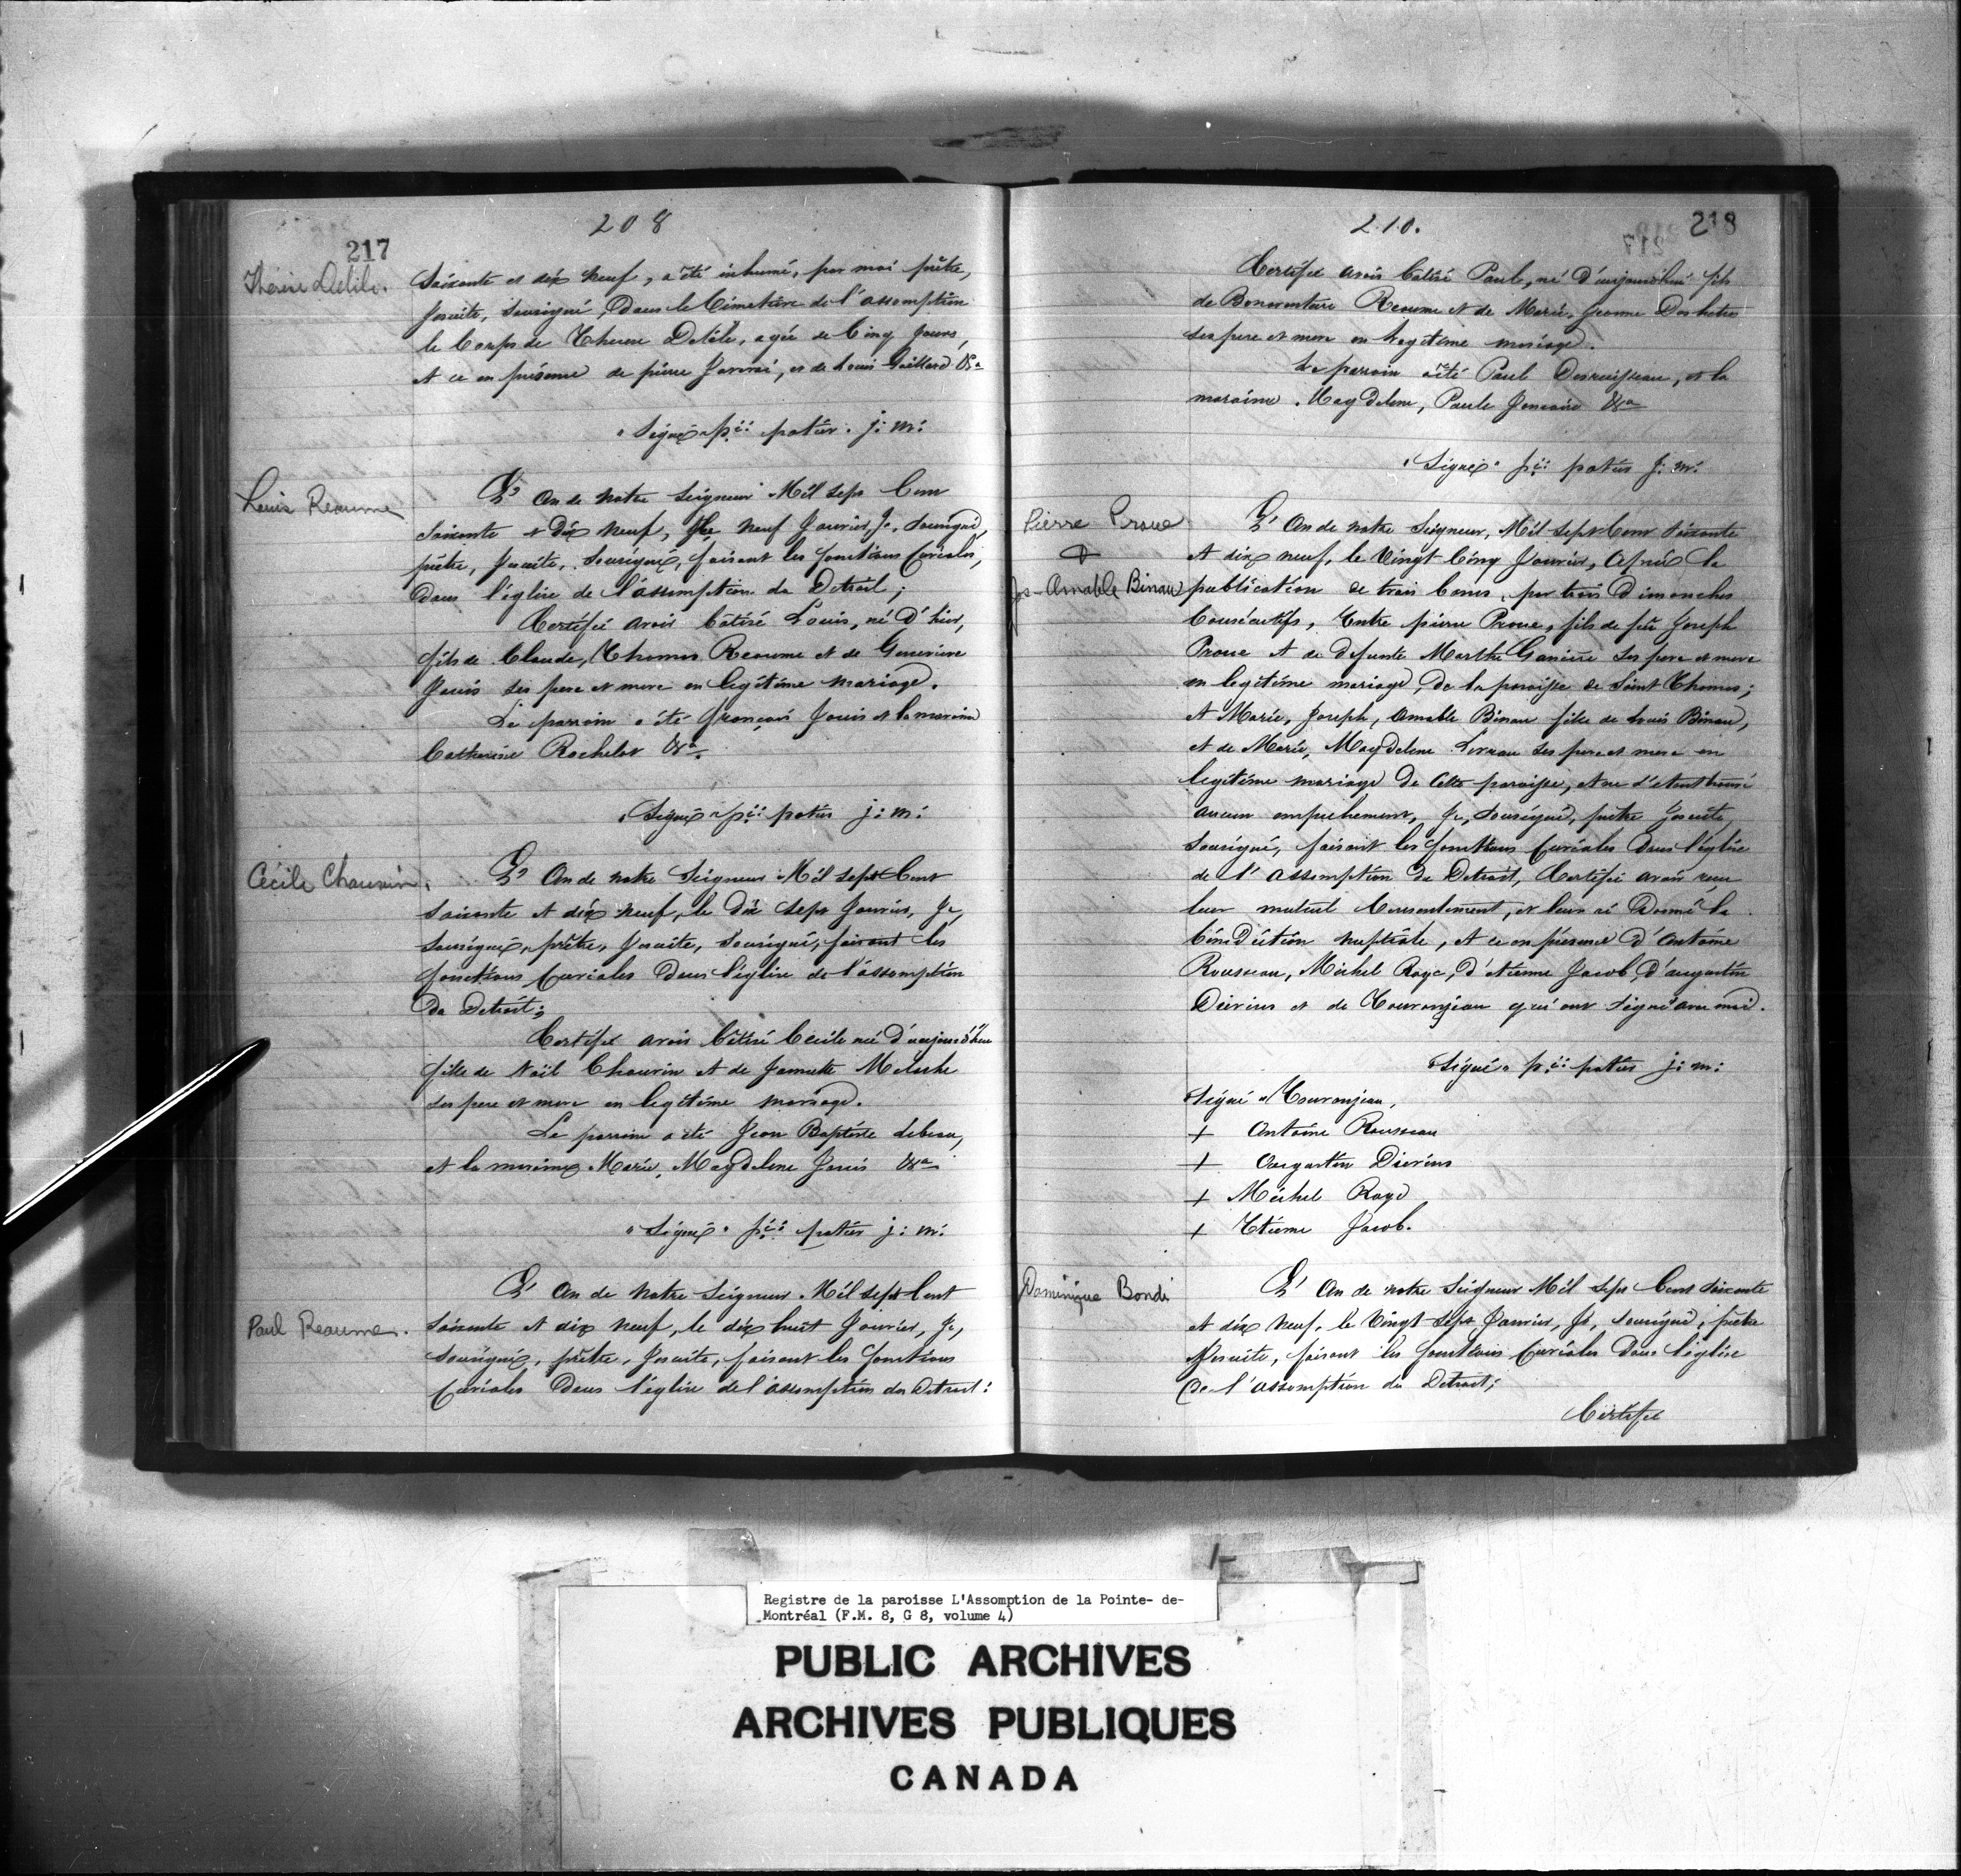 208
217
Thérèse Delile.
Soixante et dix neuf, a été inhumé, par moi prêtre,
Jesuite, Sousigné, Dans le Cimetière de l'assomption
le Corps de Therese Delile, agée de Cinq jours,
et ce en présence de pierre Janvri, et de Louis Gaillard &a
"Signé" p:re potier. j: m:
Louis Reaume
L'An de notre Seigneur Mil Sept Cent
Soixante et Dix neuf, le neuf Janvier, Je, Sousigné,
prêtre, Jesuite, Sousigné, faisant les fonctions Curiales,
Dans l'église de l'assomption du Detroit;
Certifie avoir bâtisé Louis, né d'hier,
fils de Claude, Thomas Reaume et de Genevieve
Janis ses pere et mere en legitime mariage.
Le parrain a été françois Janis et la maraine
Catherine Rochelot &a.
"Signé" p:re potier j: m:
Cécile Chauvin.
L'An de notre Seigneur Mil Sept Cent
Soixante et dix neuf, le Dix Sept Janvier, Je,
Sousigné, prêtre, Jesuite, Sousigné, faisant les
fonctions Curiales Dans l'église de l'assomption
Du Detroit;
Certifie avoir bâtisé Cecile née d'aujourd'hui
fille de Noël Chauvin et de Jannette Meloche
ses pere et mere en legitime mariage.
Le parrain a été Jean Baptiste lebeau,
et la maraine Marie, Magdelene Janis &a
"Signé" p:re potier j: m:
L'An de notre Seigneur Mil Sept Cent
Paul Reaume.
Soixante et dix neuf, le dix huit Janvier, Je,
Sousigné, prêtre, Jesuite, faisant les fonctions
Curiales Dans l'église de l'assomption du Detroit:
210.
218
Certifie avoir bâtisé Paul, né d'aujourd'hui fils
de Bonaventure Reaume et de Marie, Jeanne Deshetres
ses pere et mere en legitime mariage.
Le parrain a été Paul Desruisseau, et la
maraine Magdelene, Paule &a
"Signé" p:re potier j: m:
Pierre Proue
&
Jos-Amable Binau
L'An de notre Seigneur, Mil Sept Cent Soixante
et dix neuf, le Vingt Cinq Janvier, Après la
publication de trois bans, par trois Dimanches
Consécutifs, Entre pierre Proue, fils de feu Joseph
Proue et de defunte Marthe Ganierre ses pere et mere
en legitime mariage, De la paroisse de Saint Thomas;
et Marie, Joseph, Amable Binau fille de Louis Binau,
et de Marie, Magdelene ses pere et mere en
legitime mariage De Cette paroisse, et ne s'etant trouvé
aucun empechement, Je, Sousigné, prêtre Jesuite,
Sousigné, faisant les fonctions Curiales Dans l'église
de l'assomption du Detroit, Certifie avoir reçu
leur mutuel Consentement, et leur ai Donné la
bénédiction nuptiale, et ce en présence d'Antoine
Rousseau, Michel Roye, d'etienne Jacob, d'augustin
Dievins et de Touranjeau qui ont signé avec moi.
"Signé" p:re potier j: m:
Signé "Touranjeau,
+ Antoine Rousseau
+ Augustin Dievins
+ Michel Roye
+ Etienne Jacob.
Dominique Bondi
L'An de notre Seigneur Mil Sept Cent Soixante
et dix neuf, le Vingt Sept Janvier, Je, Sousigné, prêtre
Jesuite, faisant les fonctions Curiales Dans l'église
De l'assomption du Detroit;
Certifie
Registre de la paroisse L'Assomption de la Pointe- de-
Montréal (F.M. 8, G 8, volume 4)
PUBLIC ARCHIVES
ARCHIVES PUBLIQUES
CANADA